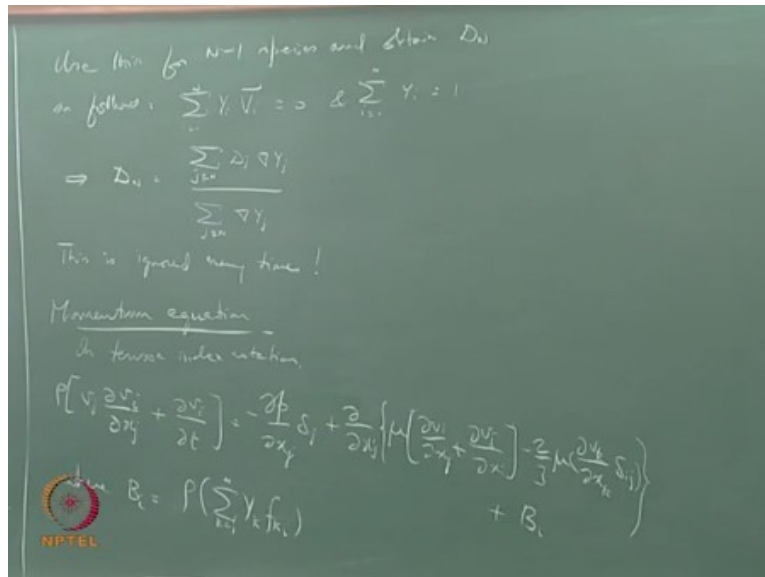 Use this for N-1 species and obtain D_N
as follows: \sum^{N} Y_i \vec{V}_i = 0 & \sum_{i=1}^{N} Y_i = 1
⇒ D_N = \frac{\sum_{j≠N} D_j ∇Y_j}{\sum_{j≠N} ∇Y_j}
This is ignored many times!
Momentum equation
In tensor index notation,
ρ[v_j ∂v_i/∂x_j + ∂v_i/∂t] = -∂p/∂x_j δ_{ij} + ∂/∂x_j {μ[∂v_i/∂x_j + ∂v_j/∂x_i] - 2/3 μ(∂v_k/∂x_k δ_{ij})}
+ B_i
where B_i = ρ(\sum_{k=1}^{N} Y_k f_{k_i})
NPTEL